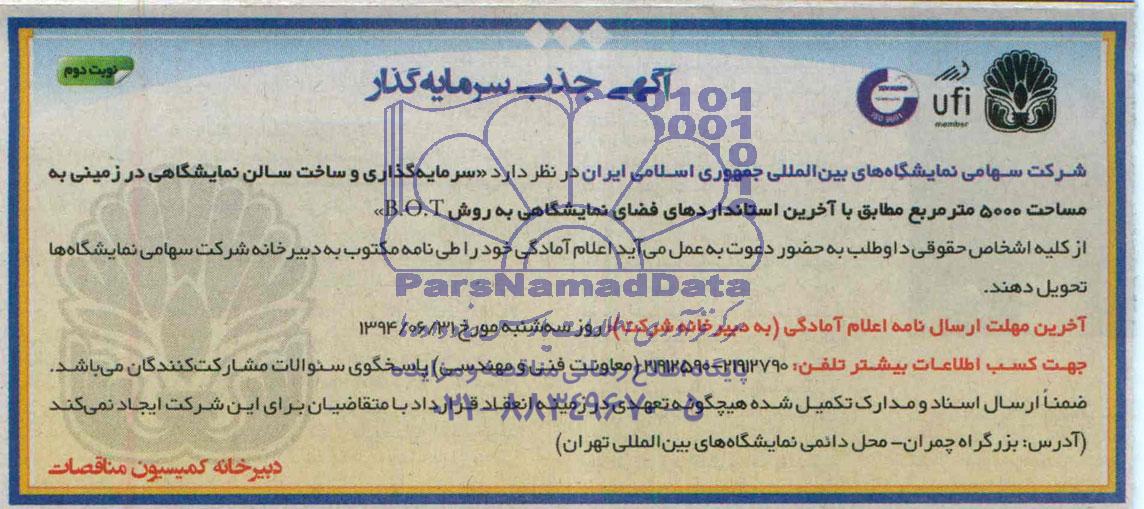 آگهی جذب سرمایه‌گذار
نوبت دوم
ufi
member
ISO 9001
شرکت سهامی نمایشگاه‌های بین‌المللی جمهوری اسلامی ایران در نظر دارد «سرمایه‌گذاری و ساخت سالن نمایشگاهی در زمینی به
مساحت ۵۰۰۰ مترمربع مطابق با آخرین استانداردهای فضای نمایشگاهی به روش B.O.T»
از کلیه اشخاص حقوقی داوطلب به حضور دعوت به عمل می‌آید اعلام آمادگی خود را طی نامه مکتوب به دبیرخانه شرکت سهامی نمایشگاه‌ها
تحویل دهند.
آخرین مهلت ارسال نامه اعلام آمادگی (به دبیرخانه شرکت): روز سه‌شنبه مورخ ۱۳۹۴/۰۶/۳۱
جهت کسب اطلاعات بیشتر تلفن: ۲۱۹۱۲۷۹۰-۲۱۹۱۲۵۹۰ (معاونت فنی و مهندسی) پاسخگوی سئوالات مشارکت‌کنندگان می‌باشد.
ضمناً ارسال اسناد و مدارک تکمیل شده هیچگونه تعهدی در زمینه انعقاد قرارداد با متقاضیان برای این شرکت ایجاد نمی‌کند
(آدرس: بزرگراه چمران- محل دائمی نمایشگاه‌های بین‌المللی تهران)
دبیرخانه کمیسیون مناقصات
ParsNamadData
پایگاه اطلاع رسانی مناقصه و مزایده
۰۲۱-۸۸۳۴۹۶۷۰-۵